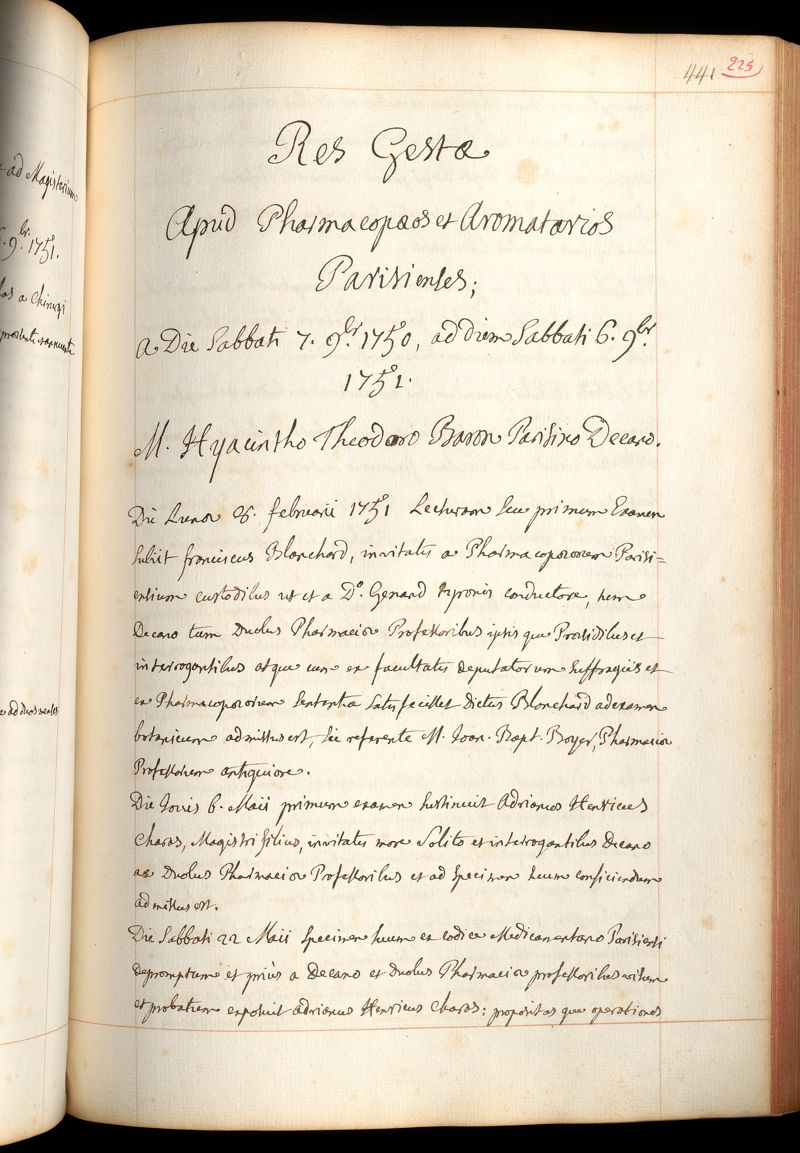 441 225
Res Gestæ
Apud Pharmacopæos et Aromatarios
Parisienses;
a Die Sabbati 7. 9.br 1750, ad diem Sabbati 6. 9.br
1751.
M. Hyacintho Theodoro Baron Parisino Decano.
Die Lunæ 26. februarii 1751 Lecturam seu primum Examen
subiit franciscus Blanchard, invitatis a Pharmacopœorum Parisi=
ensium custodibus ut et a D.o Genard tyronis conductore, tum
Decano tum Duobus Pharmaciæ Professoribus ipsis que Præsidibus et
interrogantibus atque cum ex facultatis deputatorum suffragiis et
ex Pharmacopœorum sententia satisfecisset dictus Blanchard ad examen
botanicum admissus est, sic referente M. Joan. Bapt. Boyer, Pharmaciæ
Professorum antiquiore.
Die Jovis 6. Maii primum examen sustinuit Adrianus Henricus
Charas, Magistri filius, invitatis more solito et interrogantibus Decano
ac Duobus Pharmaciæ Professoribus et ad specimen suum conficiendum
admissus est.
Die Sabbati 22 Maii specimen suum ex codice Medicamentario Parisiensi
depromptum et priùs a Decano et Duobus Pharmaciæ professoribus visum
et probatum exposuit Adrianus Henricus Charas: propositas que operationes
ad Magisterium
9.br 1751.
a Chirurgi